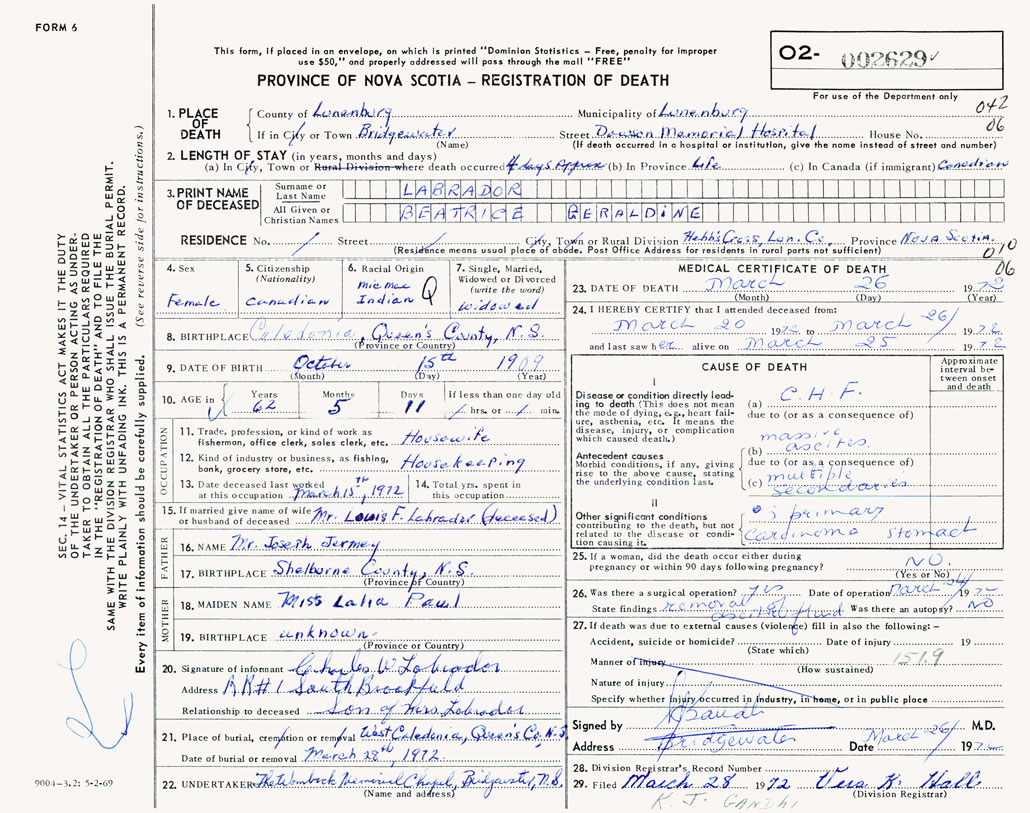 FORM 6
This form, if placed in an envelope, on which is printed "Dominion Statistics – Free, penalty for improper
use $50," and properly addressed will pass through the mail "FREE"
PROVINCE OF NOVA SCOTIA – REGISTRATION OF DEATH
02- 002629
For use of the Department only
042
06
SEC. 14 – VITAL STATISTICS ACT MAKES IT THE DUTY
OF THE UNDERTAKER OR PERSON ACTING AS UNDER-
TAKER TO OBTAIN ALL THE PARTICULARS REQUIRED
IN THE "REGISTRATION OF DEATH" AND TO FILE THE
SAME WITH THE DIVISION REGISTRAR WHO SHALL ISSUE THE BURIAL PERMIT.
WRITE PLAINLY WITH UNFADING INK. THIS IS A PERMANENT RECORD.
Every item of information should be carefully supplied. (See reverse side for instructions.)
1. PLACE OF DEATH
County of Lunenburg Municipality of Lunenburg
If in City or Town Bridgewater Street Dawson Memorial Hospital House No.
(Name) (If death occurred in a hospital or institution, give the name instead of street and number)
2. LENGTH OF STAY (in years, months and days)
(a) In City, Town or Rural Division where death occurred 4 days Approx (b) In Province Life (c) In Canada (if immigrant) Canadian
3. PRINT NAME OF DECEASED
Surname or Last Name LABRADOR
All Given or Christian Names BEATRICE GERALDINE
RESIDENCE No. / Street City, Town or Rural Division Hebb's Cross, Lun. Co., Province Nova Scotia
(Residence means usual place of abode. Post Office Address for residents in rural parts not sufficient)
010
06
4. Sex Female
5. Citizenship (Nationality) Canadian
6. Racial Origin micmac Indian Q
7. Single, Married, Widowed or Divorced (write the word) widowed
8. BIRTHPLACE Caledonia, Queen's County, N.S.
(Province or Country)
9. DATE OF BIRTH October 15th 1909
(Month) (Day) (Year)
10. AGE in Years 62 Months 5 Days 11 If less than one day / hrs. or / min.
OCCUPATION
11. Trade, profession, or kind of work as
fisherman, office clerk, sales clerk, etc. Housewife
12. Kind of industry or business, as fishing,
bank, grocery store, etc. Housekeeping
13. Date deceased last worked
at this occupation March 15th, 1972
14. Total yrs. spent in
this occupation
15. If married give name of wife
or husband of deceased Mr. Louis F. Labrador (deceased)
FATHER
16. NAME Mr. Joseph Jermey
17. BIRTHPLACE Shelburne County, N.S.
(Province or Country)
MOTHER
18. MAIDEN NAME Miss Lalia Paul
19. BIRTHPLACE unknown
(Province or Country)
20. Signature of informant Charles W. Labrador
Address RR#1 South Brookfield
Relationship to deceased Son of Mrs. Labrador
21. Place of burial, cremation or removal West Caledonia, Queen's Co., N.S.
Date of burial or removal March 28th, 1972
22. UNDERTAKER Memorial Chapel, Bridgewater, N.S.
(Name and address)
9004–3.2: 5-2-69
MEDICAL CERTIFICATE OF DEATH
23. DATE OF DEATH March 26 1972
(Month) (Day) (Year)
24. I HEREBY CERTIFY that I attended deceased from:
March 20 1972 to March 26/ 1972
and last saw her alive on March 25 1972
CAUSE OF DEATH
Approximate interval between onset and death
I
Disease or condition directly leading to death (This does not mean the mode of dying, e.g., heart failure, asthenia, etc. It means the disease, injury, or complication which caused death.)
(a) C.H.F.
due to (or as a consequence of)
Antecedent causes
Morbid conditions, if any, giving rise to the above cause, stating the underlying condition last.
(b) massive ascites.
due to (or as a consequence of)
(c) multiple secondaries
II
Other significant conditions contributing to the death, but not related to the disease or condition causing it.
primary
Carcinoma stomach
25. If a woman, did the death occur either during
pregnancy or within 90 days following pregnancy? NO.
(Yes or No)
26. Was there a surgical operation? yes Date of operation March 24/ 197
State findings removal fluid Was there an autopsy? NO
27. If death was due to external causes (violence) fill in also the following: –
Accident, suicide or homicide? Date of injury 19
(State which)
Manner of injury 151.9
(How sustained)
Nature of injury
Specify whether injury occurred in industry, in home, or in public place
Signed by M.D.
Address Bridgewater Date March 26/ 1972
28. Division Registrar's Record Number
29. Filed March 28 1972 Vera K. Hall
(Division Registrar)
K. J. GANDHI